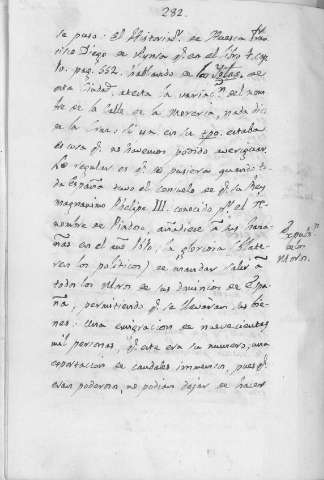 282.
se puso: El Historiad.r de Huesca Fran
cisco Diego de Aynsa q.e en el libro 4. cap
pag. 552. hablando de los
esta Ciudad, afecta la variac.n del nom
bre de la Calle de la Merceria, nada dice
de la Cruz, si ya en su tpo. estaba
es cosa q.e no havemos podido averiguar.
Lo regular es q.e se pusiera quando to
da España tuvo el consuelo de q.e su Rey
magnanimo Phelipe III. conocido p.r el re
nombre de Piadoso, añadiese à sus haza
ñas en el año 1610, la gloriosa
ren los politicos) de mandar salir à
todos los Moros de sus dominios de Espa
ña, permitiendo q.e se llevaran sus bie
nes: Una emigracion de nuevecientas
mil personas, q.e este era su numero, una
exportacion de caudales immensa, pues q.e
eran poderosos, no podian dejar de hacer
Expuls.n
de los
Moros.